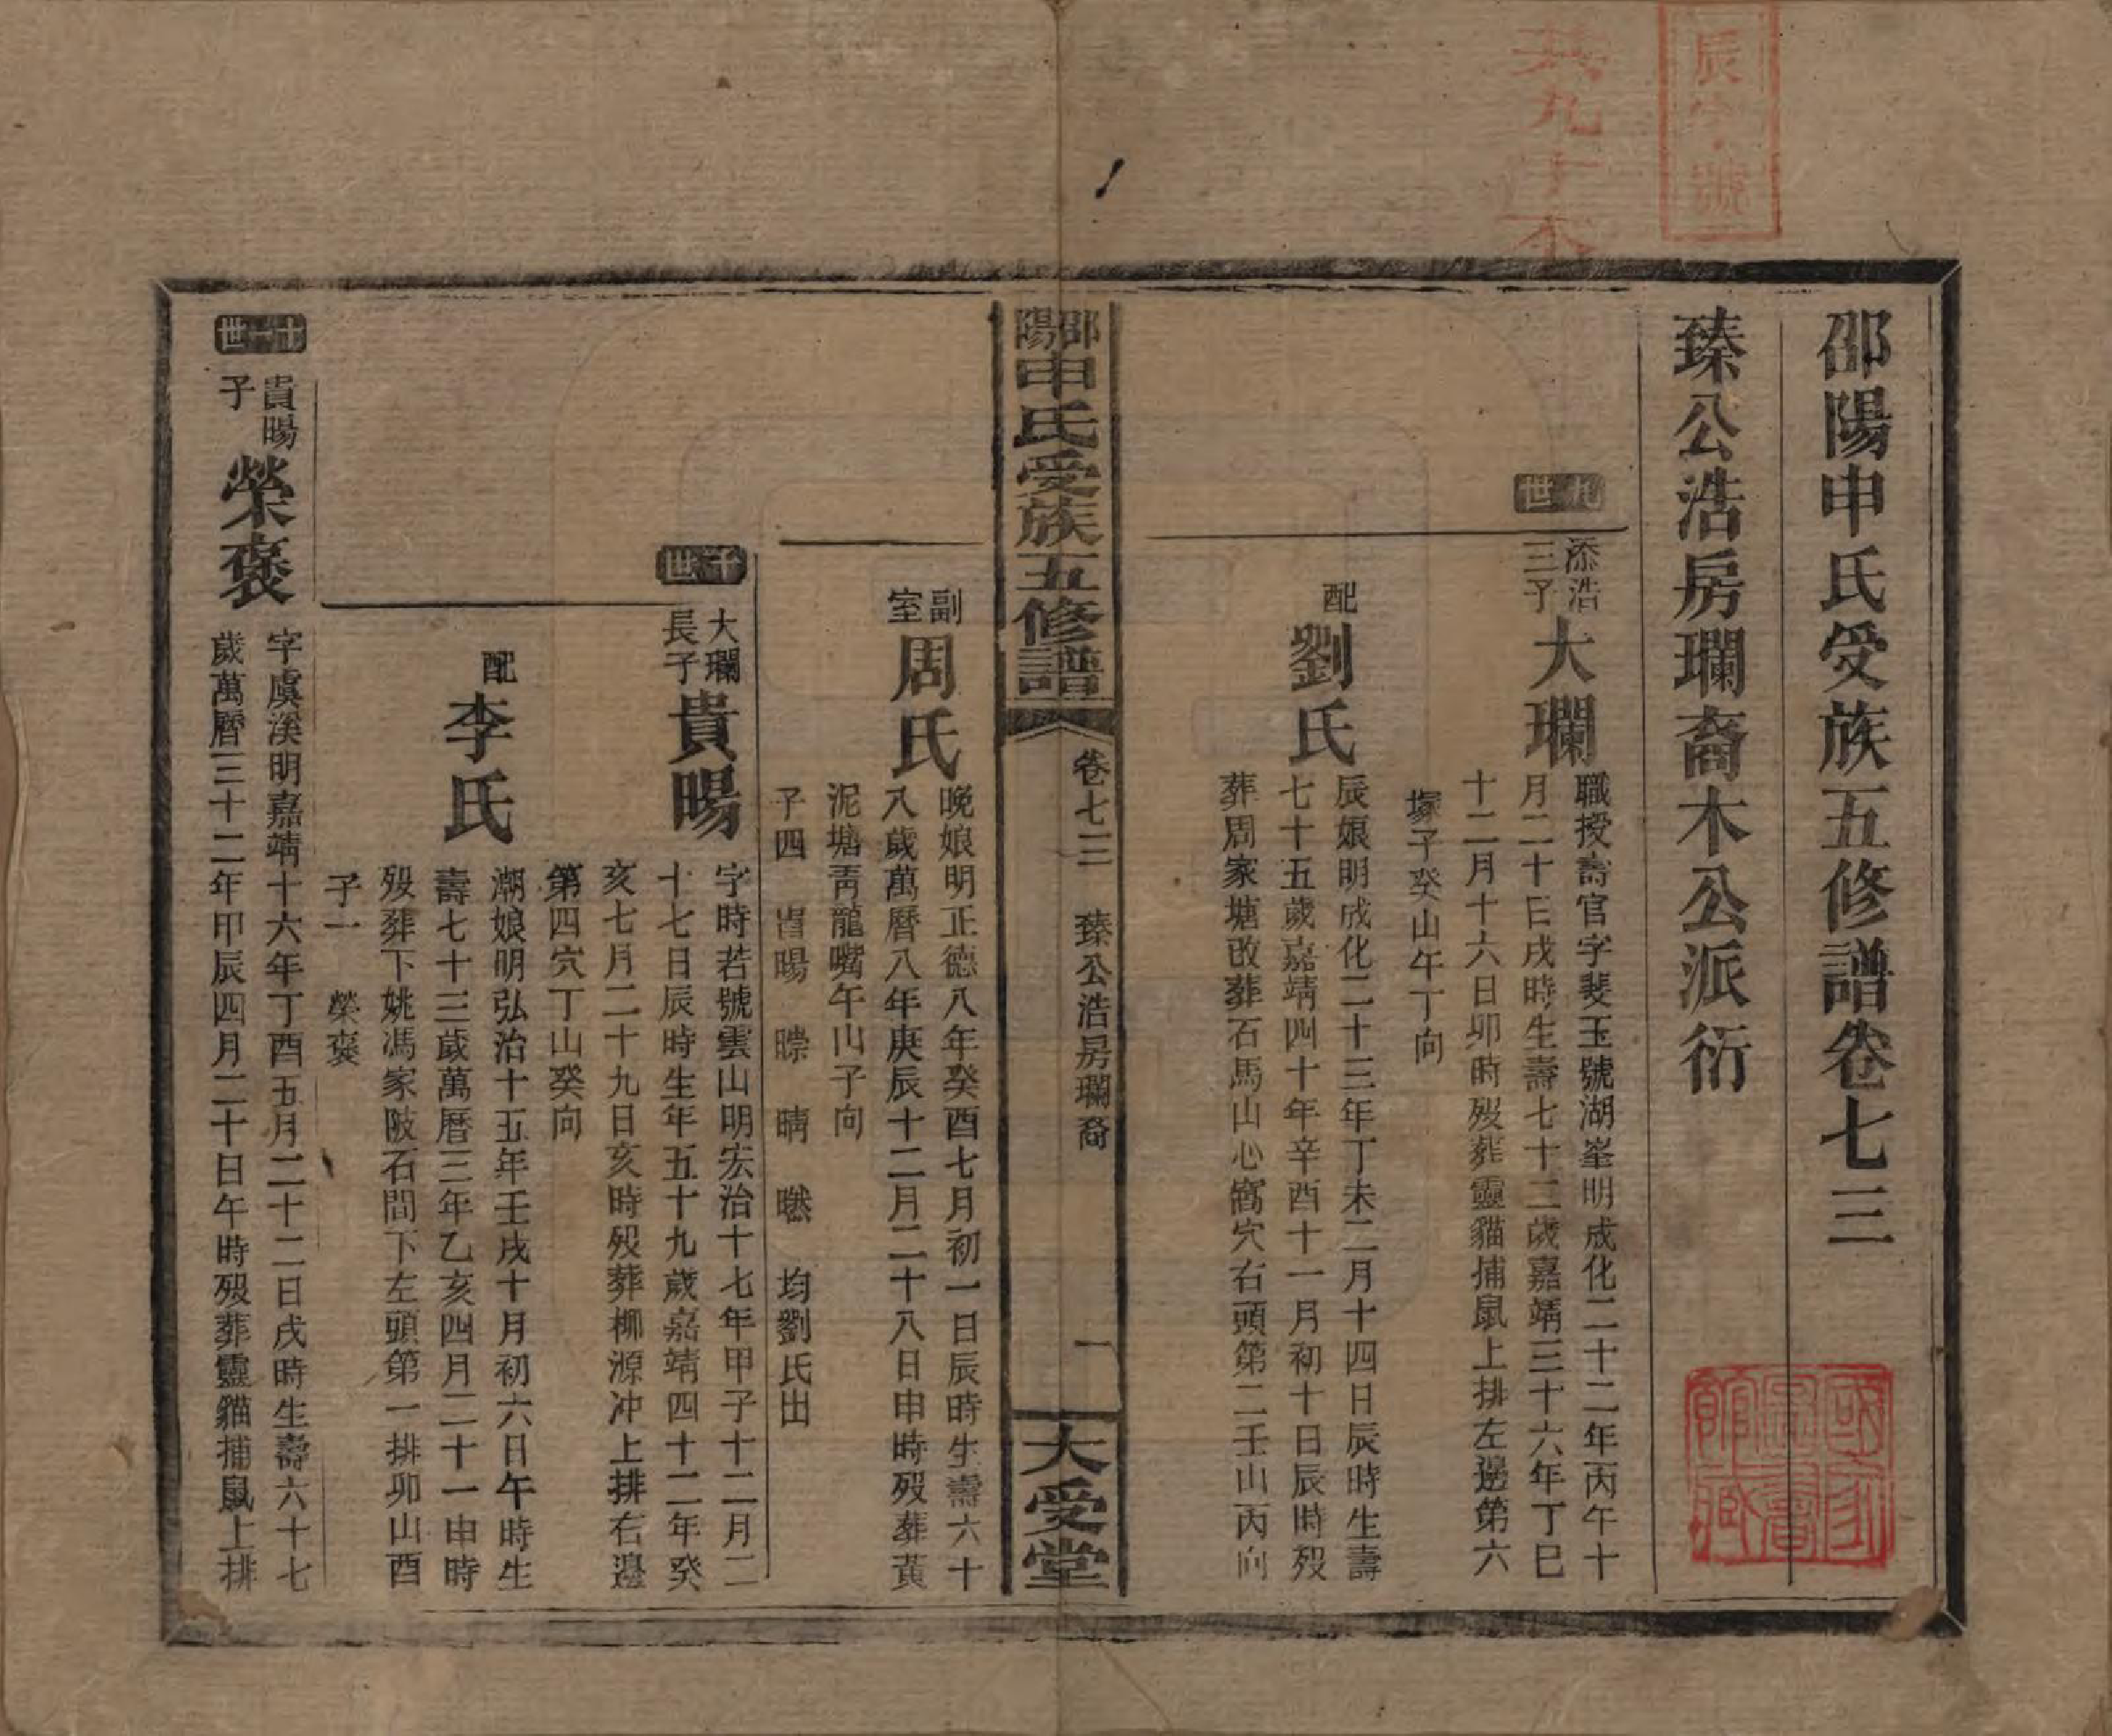 辰字號
共九十本
邵陽申氏受族五修譜卷七三
臻公浩房瓓裔木公派衍
國家圖書館藏
九世
添浩三子
大瓓
職授壽官字斐玉號湖峯明成化二十二年丙午十
月二十日戌時生壽七十二歲嘉靖三十六年丁巳
十二月十六日卯時歿葬靈貓捕鼠上排左邊第六
塚子癸山午丁向
配
劉氏
辰娘明成化二十三年丁未二月十四日辰時生壽
七十五歲嘉靖四十年辛酉十一月初十日辰時歿
葬周家塘改葬石馬山心窩穴右頭第二壬山丙向
邵陽申氏受族五修譜
卷七三
臻公浩房瓓裔
一
大受堂
副室
周氏
晚娘明正德八年癸酉七月初一日辰時生壽六十
八歲萬曆八年庚辰十二月二十八日申時歿葬黃
泥塘靑龍嘴午山子向
子四 暘 晴 均劉氏出
十世
大瓓長子
貴暘
字時若號雲山明宏治十七年甲子十二月二
十七日辰時生年五十九歲嘉靖四十二年癸
亥七月二十九日亥時歿葬柳源冲上排右邊
第四穴丁山癸向
配
李氏
潮娘明弘治十五年壬戌十月初六日午時生
壽七十三歲萬曆三年乙亥四月二十一申時
歿葬下姚馮家陂石間下左頭第一排卯山酉
子一 榮褒
十一世
貴暘子
榮褒
字虞溪明嘉靖十六年丁酉五月二十二日戌時生壽六十七
歲萬曆三十二年甲辰四月二十日午時歿葬靈貓捕鼠上排